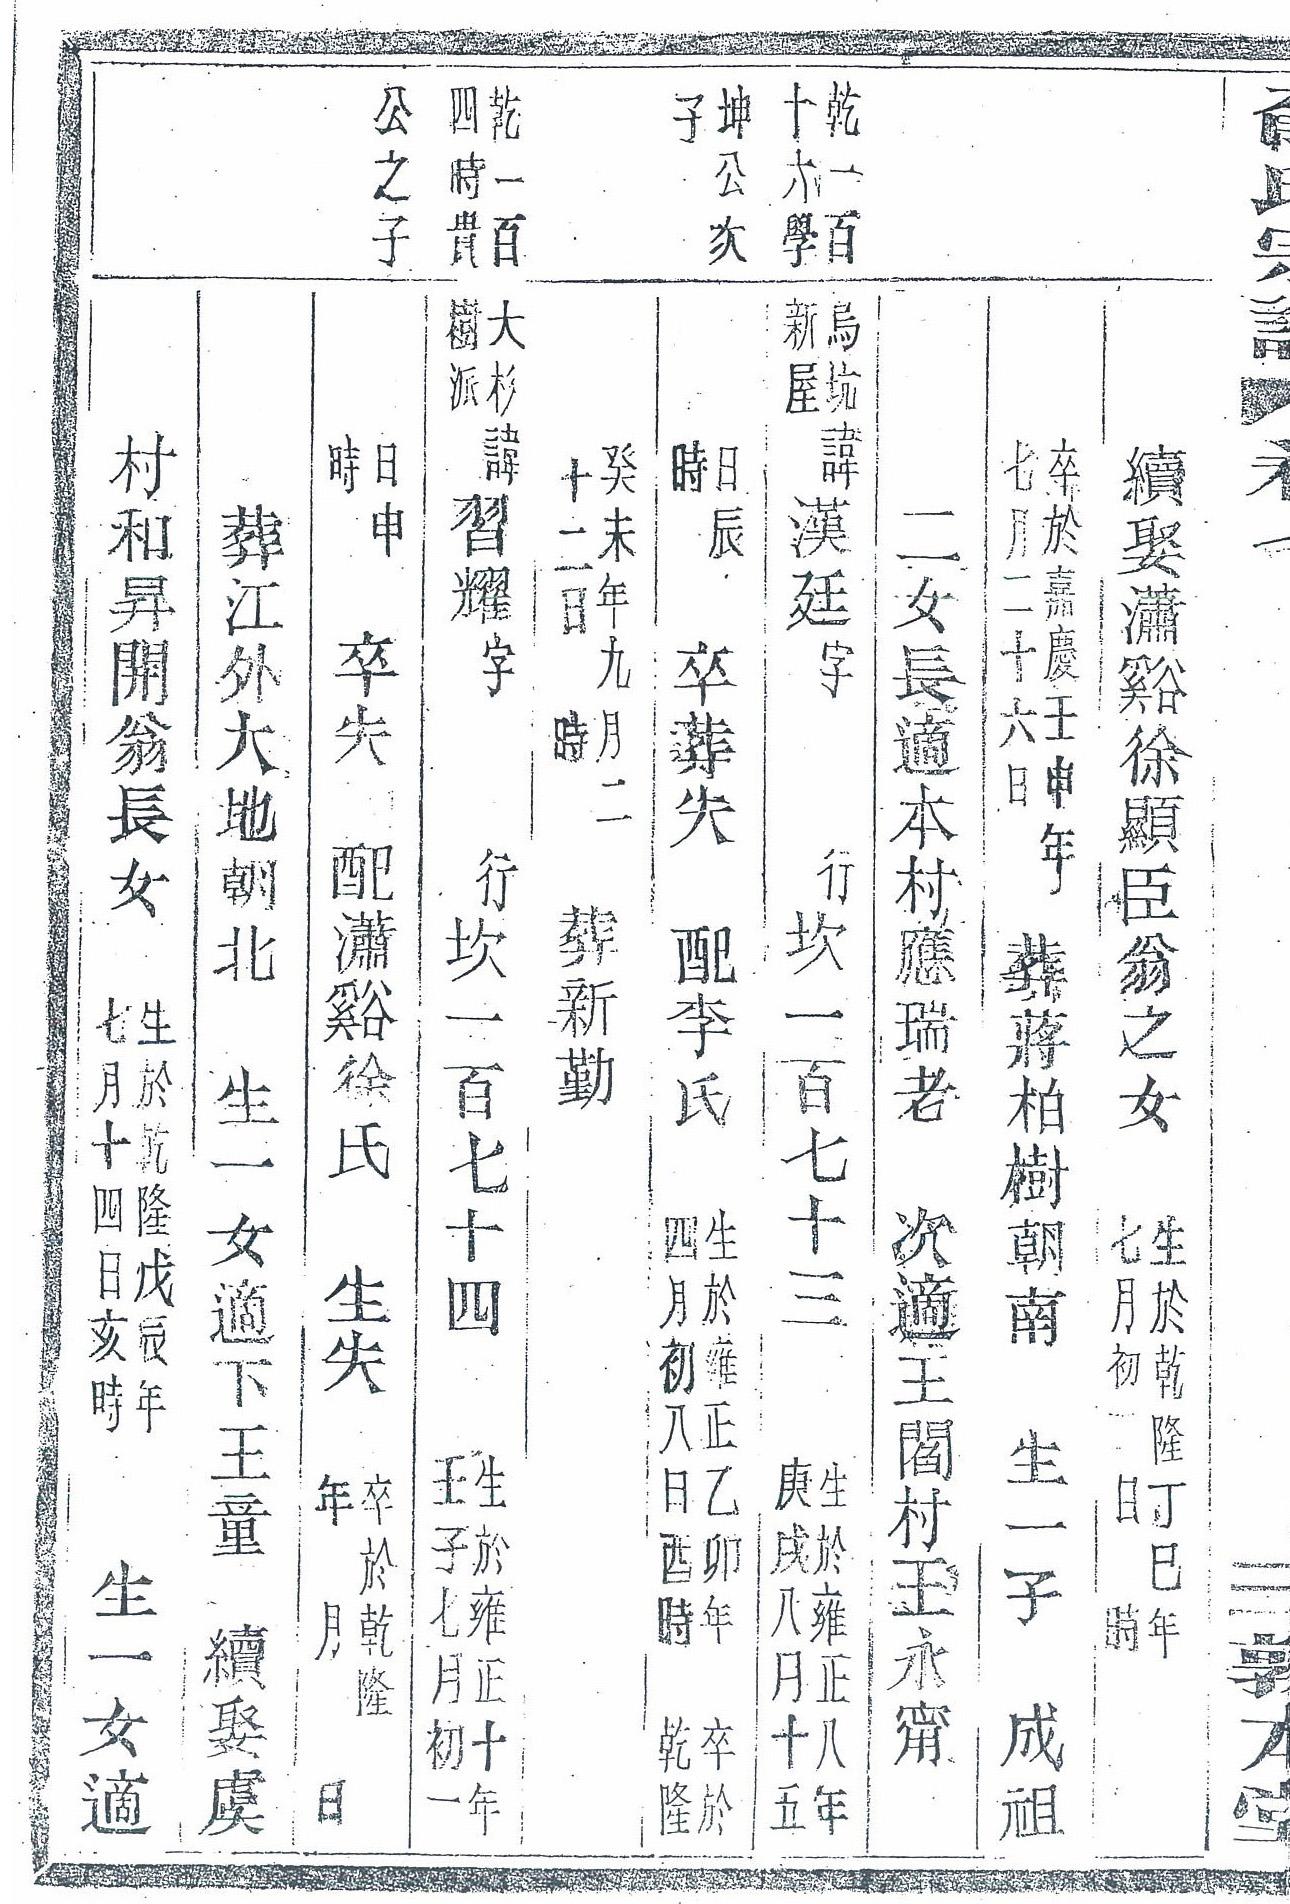 氏宗譜 卷一
三 敦本堂
續娶瀟谿徐顯臣翁之女 生於乾隆丁巳年七月初一日 時
卒於嘉慶壬申年七月二十六日 葬蔣柏樹朝南 生一子 成祖
二女長適本村應瑞老 次適王閻村王永甯
乾一百十六學
坤公次子
烏坑新屋 諱漢廷字 行坎一百七十三 生於雍正八年庚戌八月十五
日辰時 卒葬失 配李氏 生於雍正乙卯年四月初八日酉時 卒於乾隆
癸未年九月二十二日 時 葬新勤
乾一百四時貴
公之子
大杉樹派 諱習耀字 行坎一百七十四 生於雍正十年壬子七月初一
日申時 卒失 配瀟谿徐氏 生失 卒於乾隆 年 月 日
葬江外大地朝北 生一女適下王童 續娶虞
村和昇開翁長女 生於乾隆戊辰年七月十四日亥時 生一女適